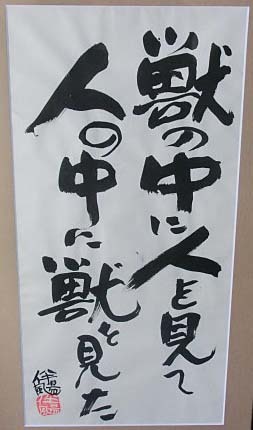 獣の中に人を見て
人の中に獣を見た